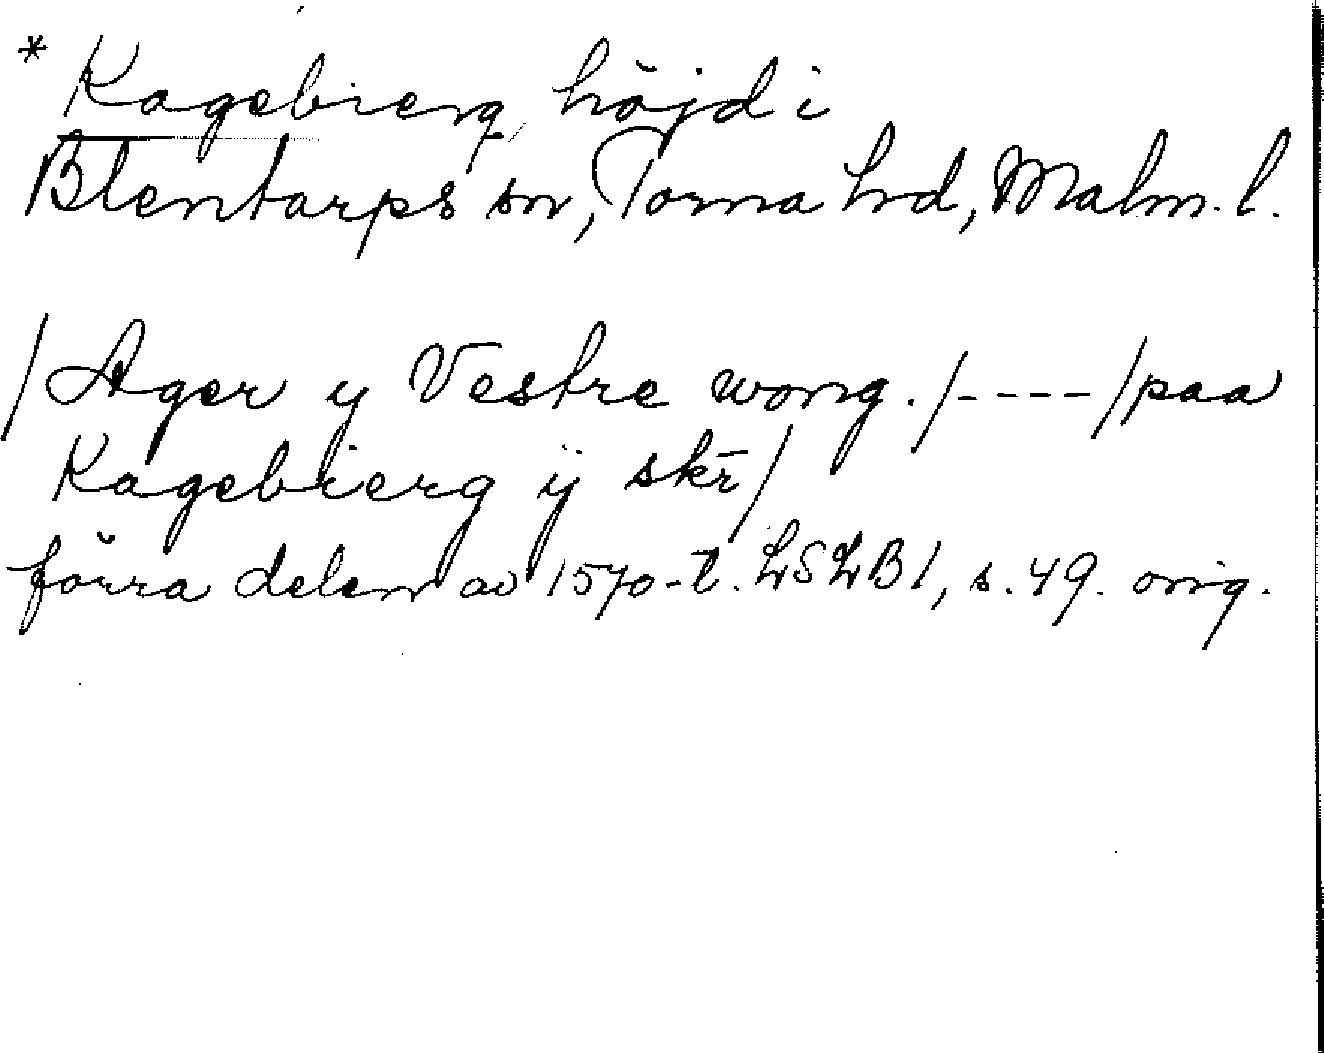 * Kagebierg, höjd i
Blentarps sn, Torna hd, Malm. l.
/Ager y Vestre wong./----/paa
Kagebierg ÿ skr̄/
förra delen av 1570-t. LSLB1, s. 49. orig.